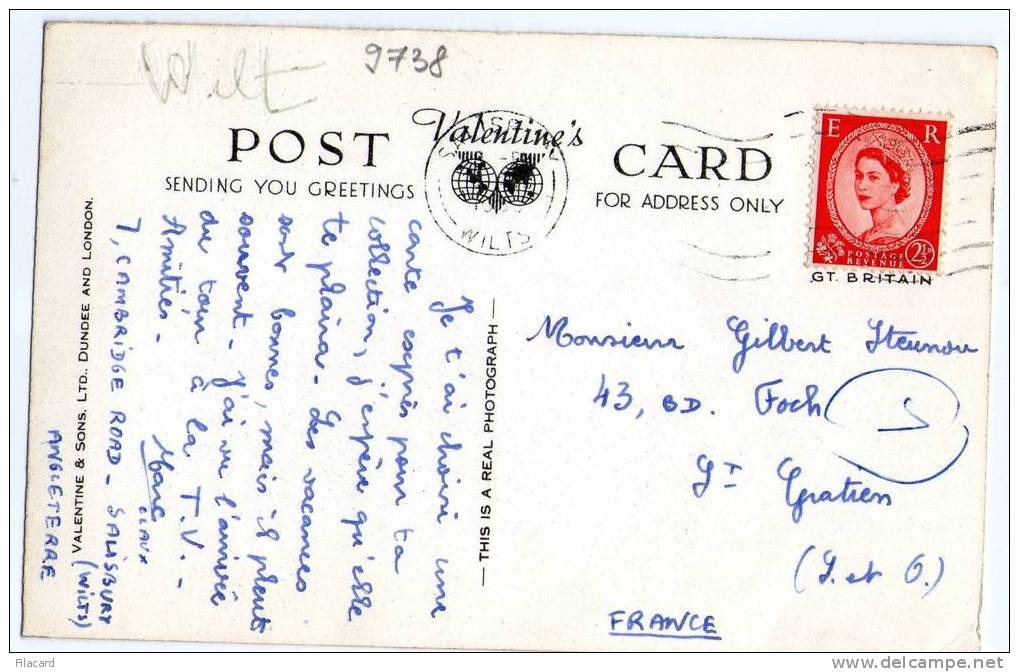 Wilt
9738
Valentine's
POST CARD
SENDING YOU GREETINGS
FOR ADDRESS ONLY
SALISBURY
WILTS
E R
POSTAGE
REVENUE
2½
GT. BRITAIN
Je t'ai choisi une
carte exprès pour ta
collection, j'espère qu'elle
te plaira - Les vacances
sont bonnes, mais il pleut
souvent - J'ai vu l'arrivée
du tour à la T.V. -
Amitiés -
Marc
7, CAMBRIDGE ROAD - SALISBURY
(WILTS)
ANGLETERRE
VALENTINE & SONS, LTD., DUNDEE AND LONDON.
THIS IS A REAL PHOTOGRAPH
Monsieur Gilbert
43, BD. Foch
St Gratien
(S. et O.)
FRANCE
Filacard
www.delcampe.net